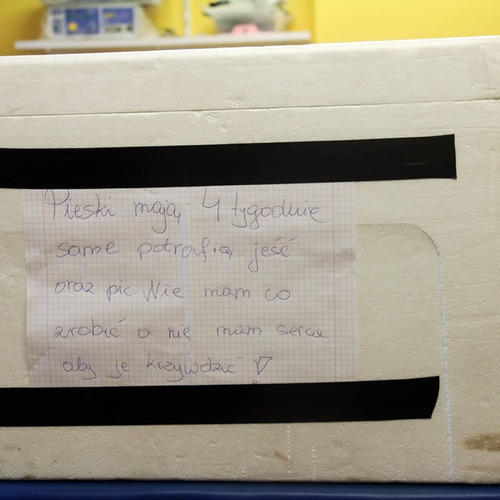 Pieski mają 4 tygodnie
same potrafią jeść
oraz pić. Nie mam co
zrobić a nie mam serca
aby je krzywdzić